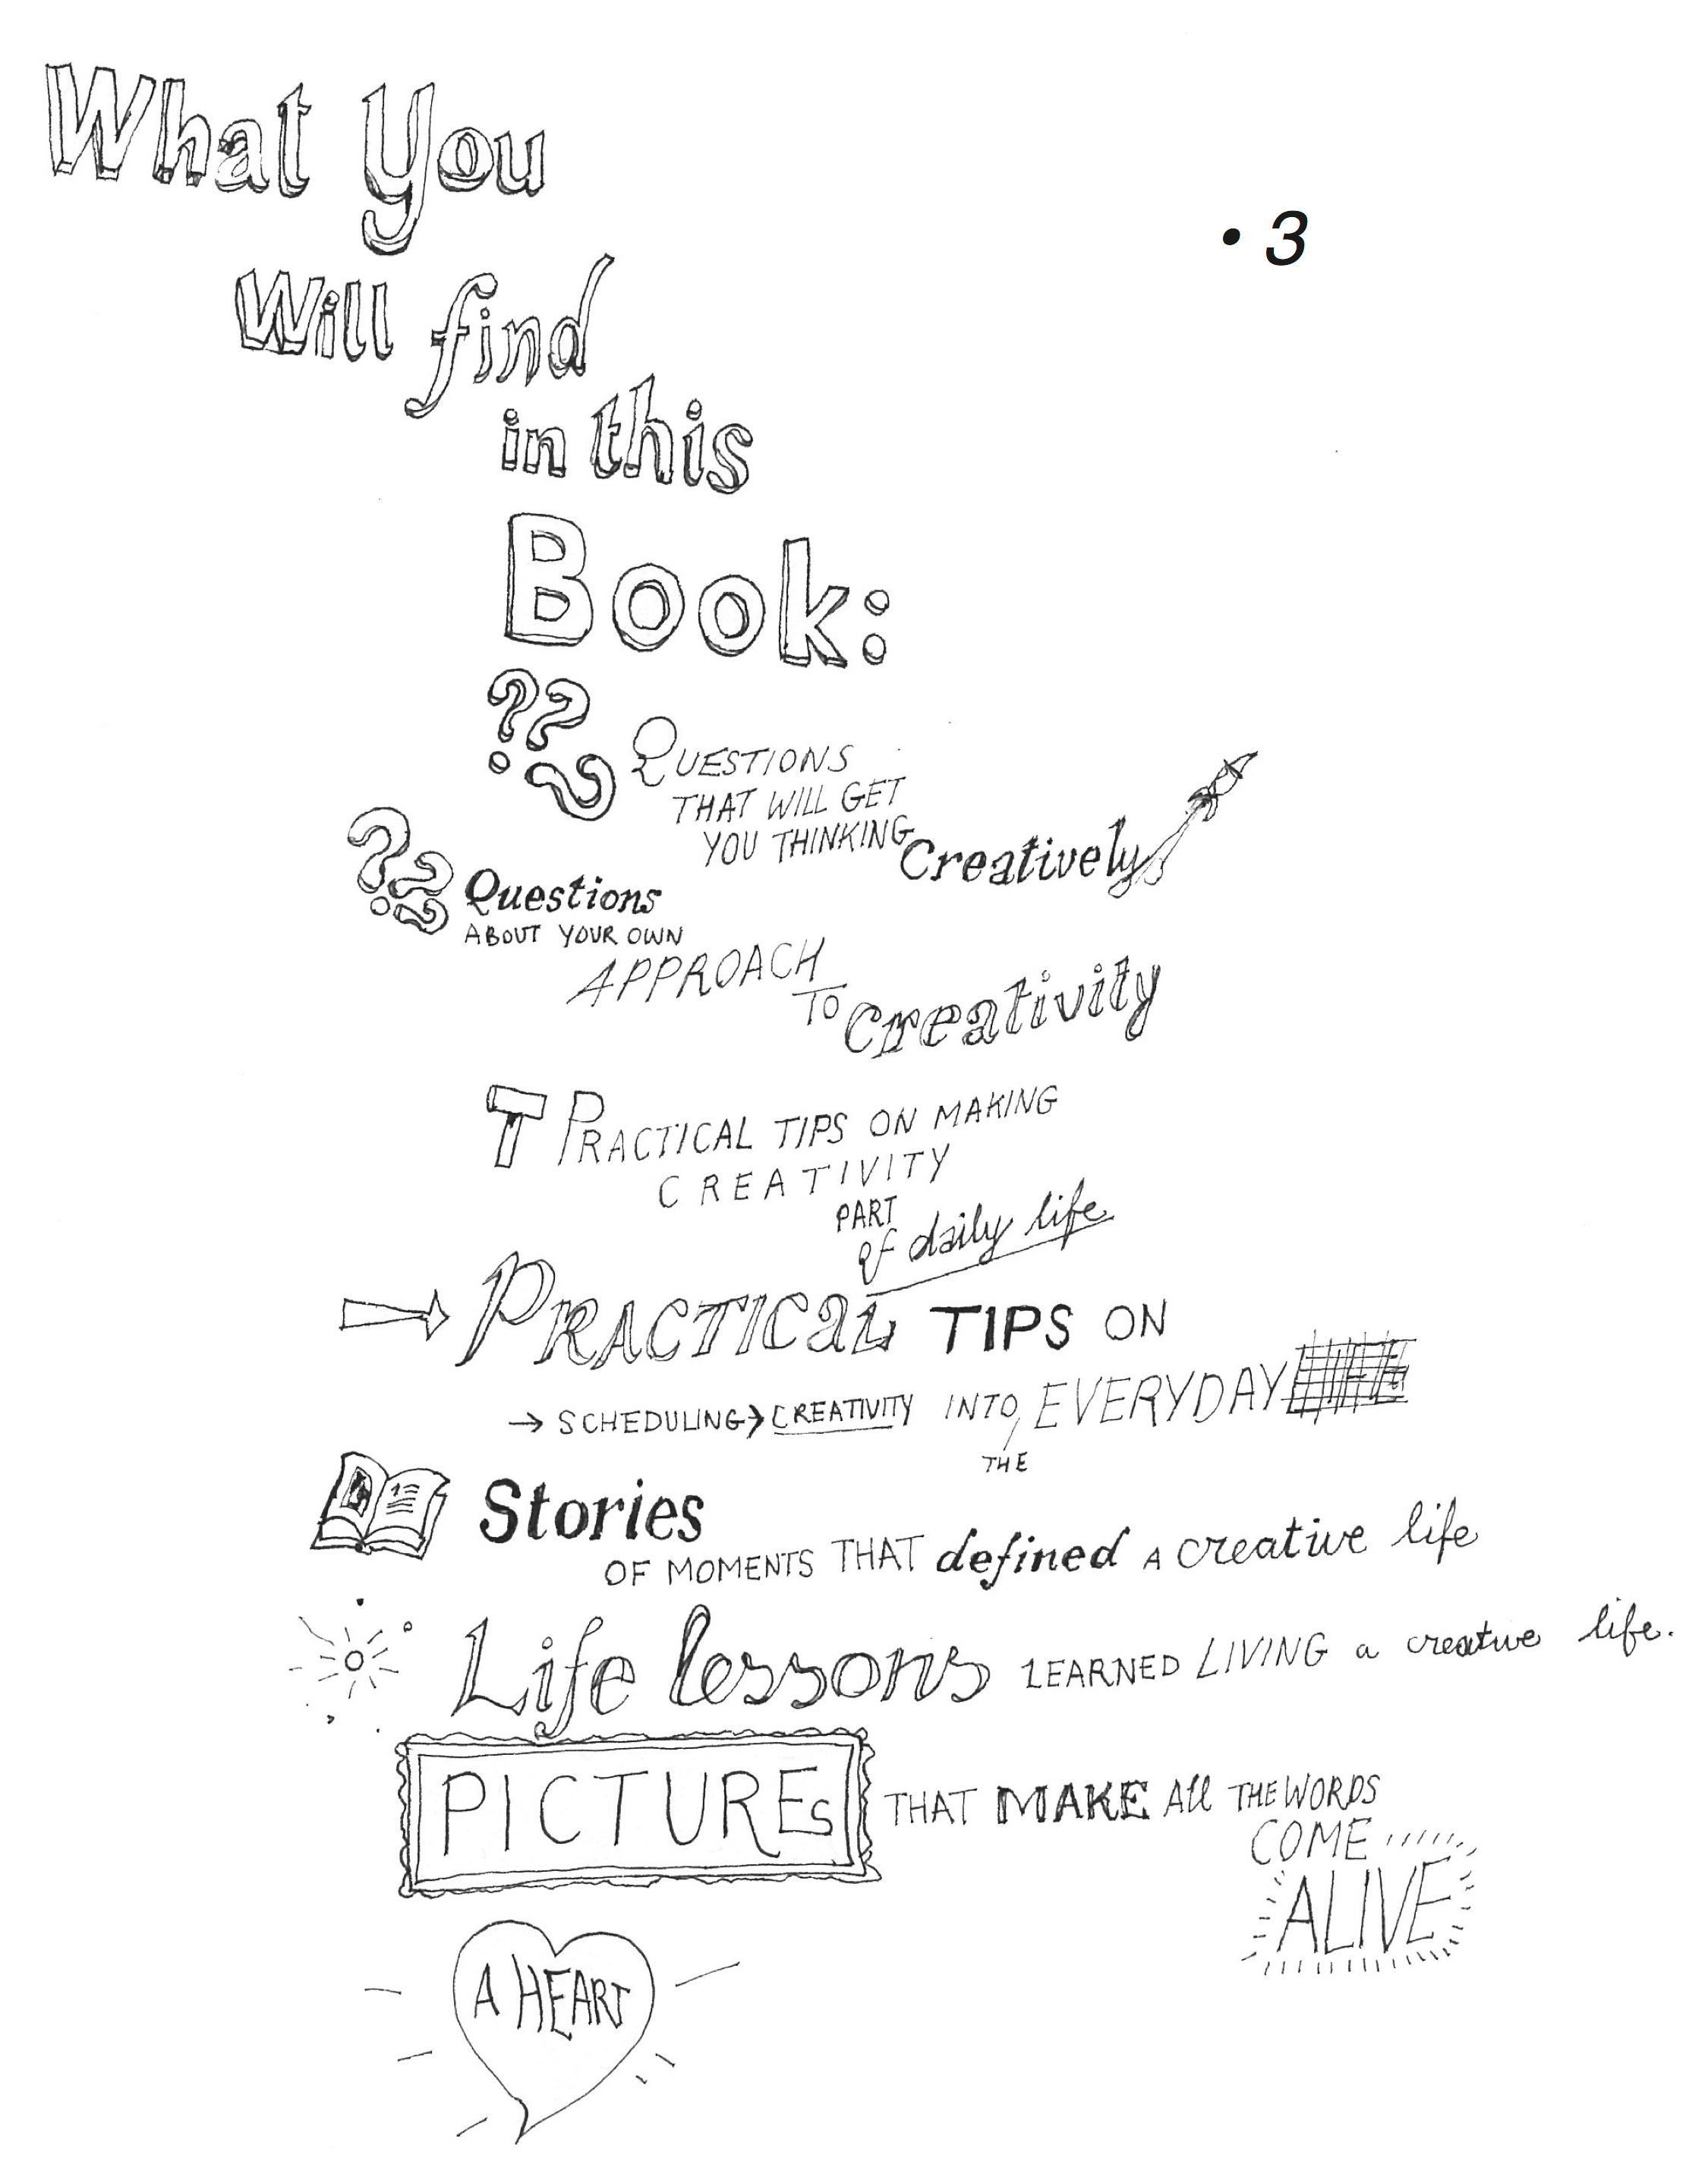 What You
• 3
Will find
in this
Book:
???
QUESTIONS
THAT WILL GET
YOU THINKING Creatively
???
Questions
ABOUT YOUR OWN
APPROACH
TO Creativity
PRACTICAL TIPS ON MAKING
CREATIVITY
PART
of daily life
PRACTICAL TIPS ON
→ SCHEDULING CREATIVITY INTO EVERYDAY
THE
Stories
OF MOMENTS THAT defined A creative life
Life lessons LEARNED LIVING a creative life.
PICTURES THAT MAKE All THE WORDS
COME
ALIVE
A HEART